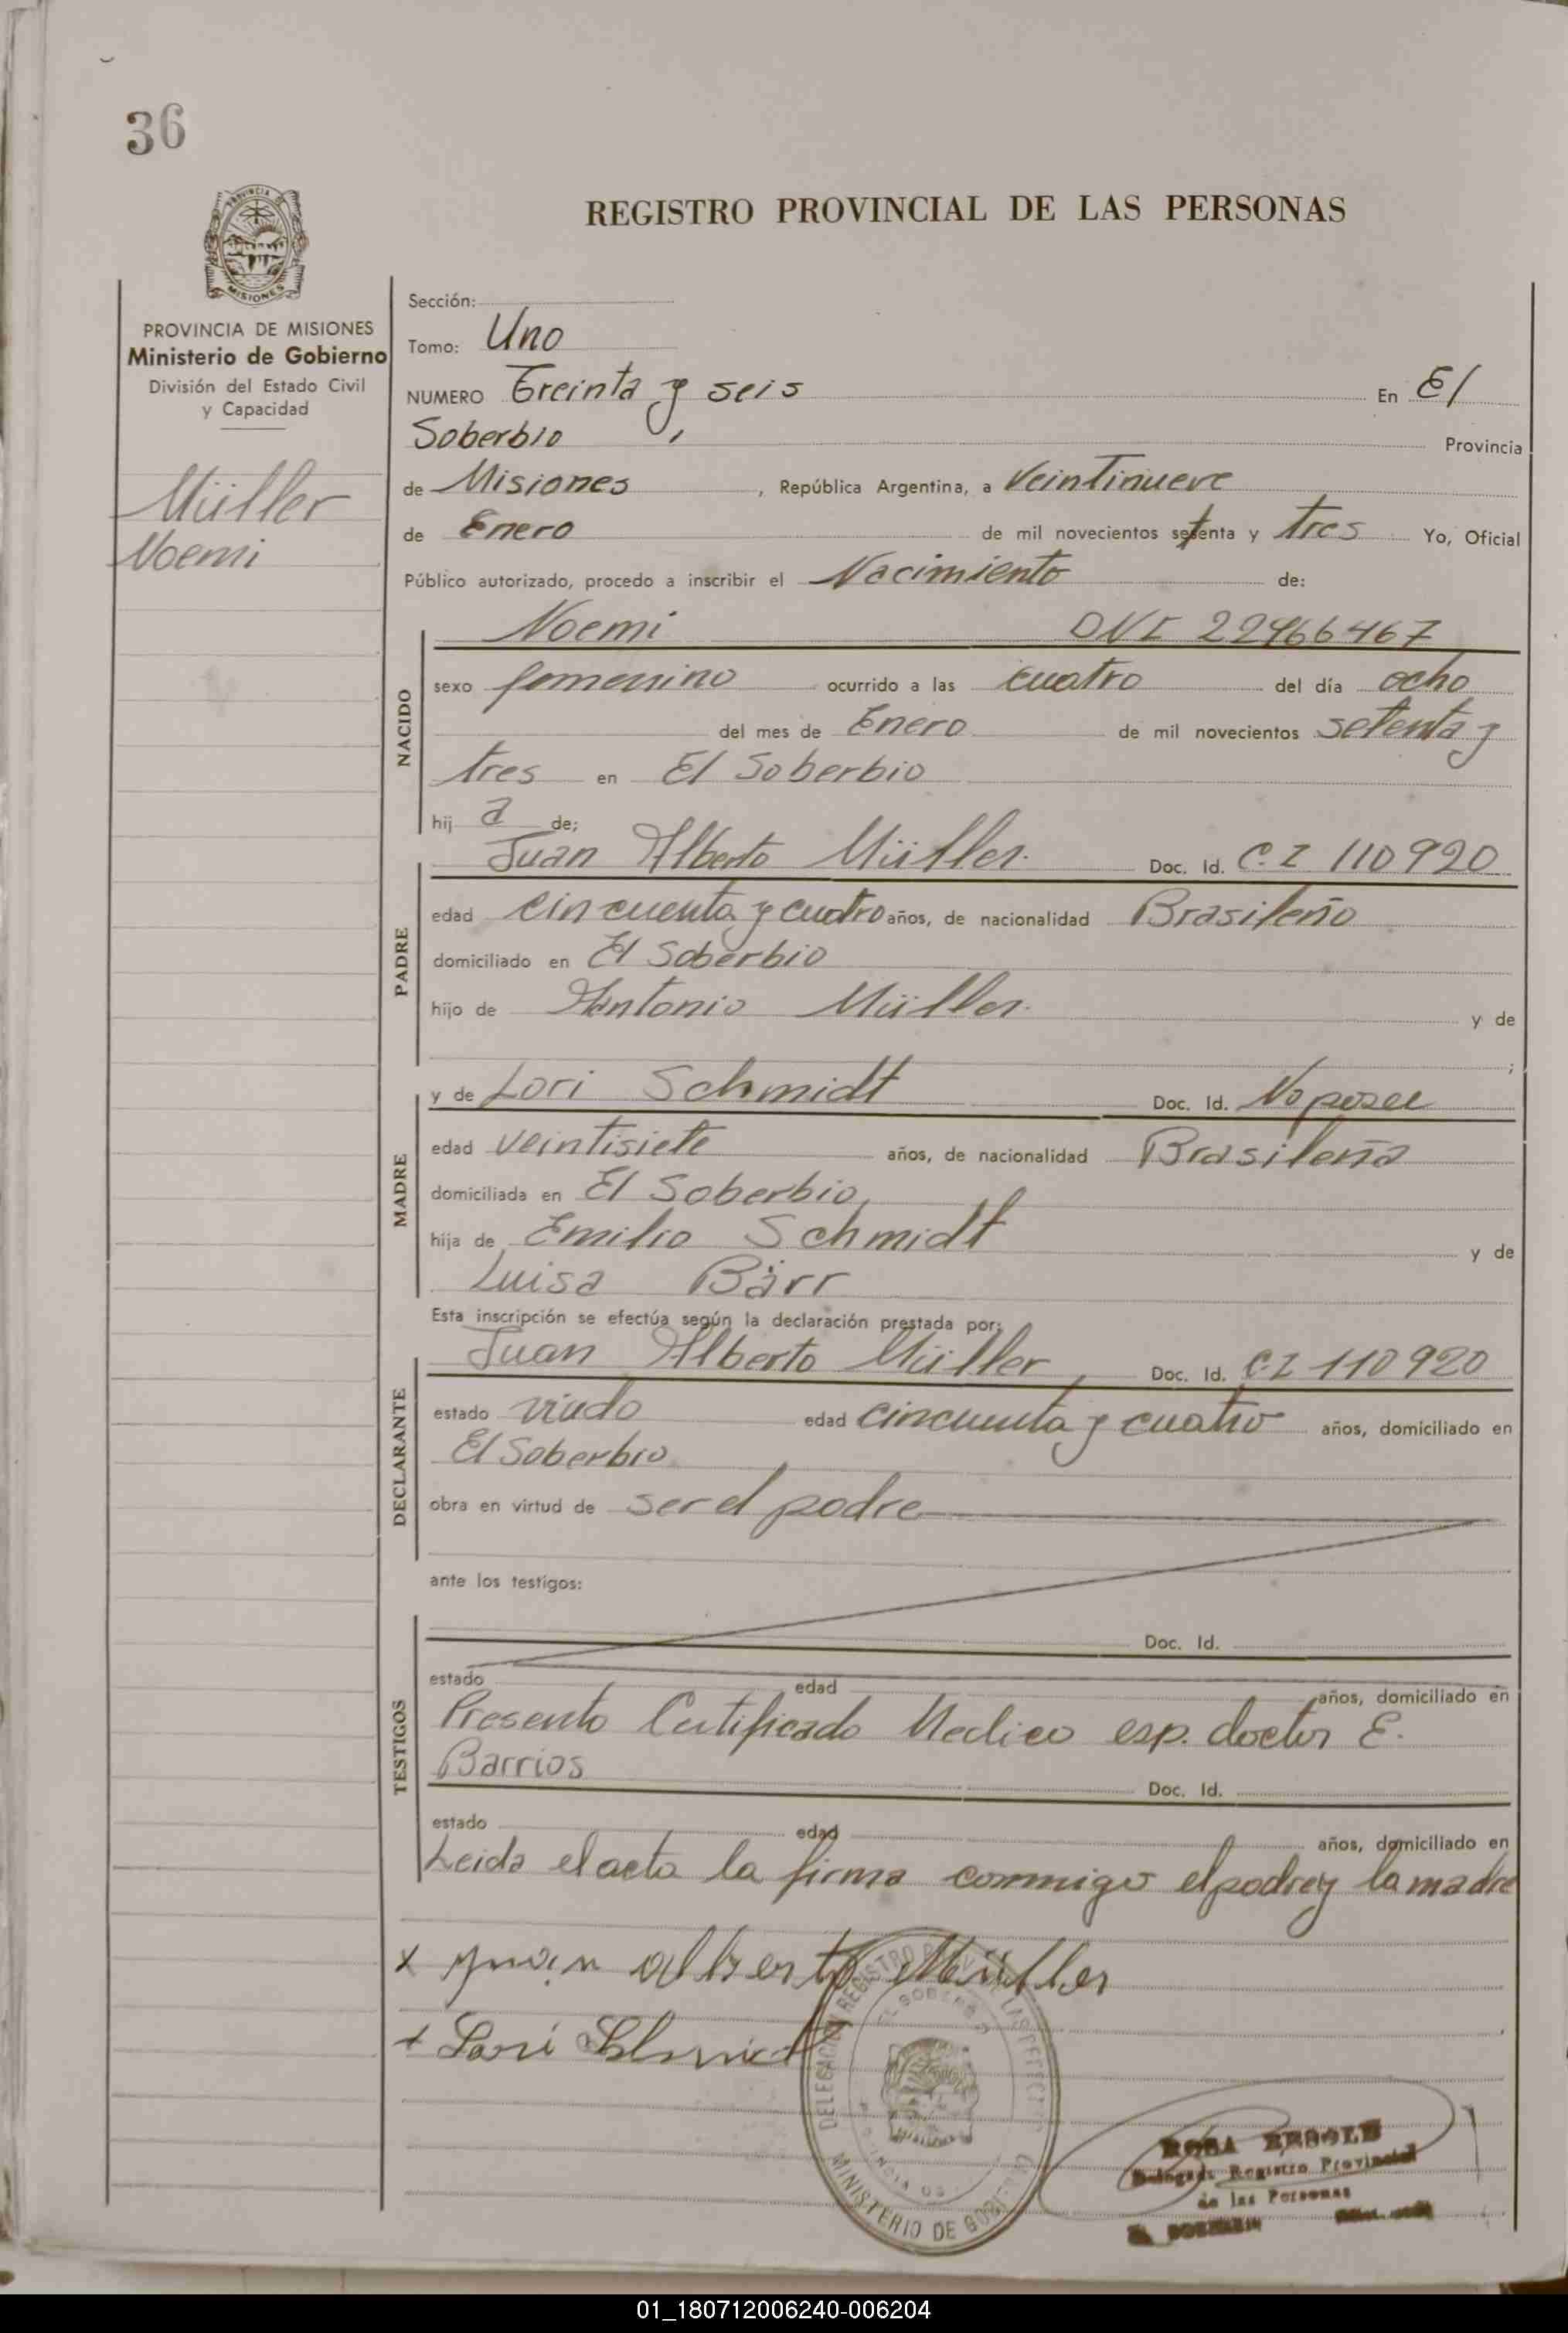 36
PROVINCIA DE
MISIONES
REGISTRO PROVINCIAL DE LAS PERSONAS
PROVINCIA DE MISIONES
Ministerio de Gobierno
División del Estado Civil
y Capacidad
Müller
Noemi
Sección:
Tomo: Uno
NUMERO Treinta y seis En El
Soberbio, Provincia
de Misiones, República Argentina, a Veintinueve
de Enero de mil novecientos setenta y Tres Yo, Oficial
Público autorizado, procedo a inscribir el Nacimiento de:
NACIDO
Noemi DNI 22966467
sexo femenino ocurrido a las cuatro del día ocho
del mes de Enero de mil novecientos setenta y
tres en El Soberbio
hij a de;
PADRE
Juan Alberto Müller. Doc. Id. C.I 110920
edad cincuenta y cuatro años, de nacionalidad Brasileño
domiciliado en El Soberbio
hijo de Antonio Müller. y de
;
MADRE
y de Lori Schmidt Doc. Id. No posee
edad veintisiete años, de nacionalidad Brasileña
domiciliada en El Soberbio,
hija de Emilio Schmidt y de
Luisa Bärr
Esta inscripción se efectúa según la declaración prestada por:
DECLARANTE
Juan Alberto Müller, Doc. Id. C.I 110920
estado viudo edad cincuenta y cuatro años, domiciliado en
El Soberbio
obra en virtud de ser el padre
ante los testigos:
TESTIGOS
Doc. Id.
estado edad años, domiciliado en
Presento Certificado Medico esp. doctor E.
Barrios
Doc. Id.
estado edad años, domiciliado en
Leida el acta la firma conmigo el padre y la madre
x Juan alberto Müller
x Lori Schmidt
DELEGACION REGISTRO PROVINCIAL DE LAS PERSONAS
EL SOBERBIO
MINISTERIO DE GOBIERNO
ROSA
Delegada Registro Provincial
de las Personas
01_180712006240-006204